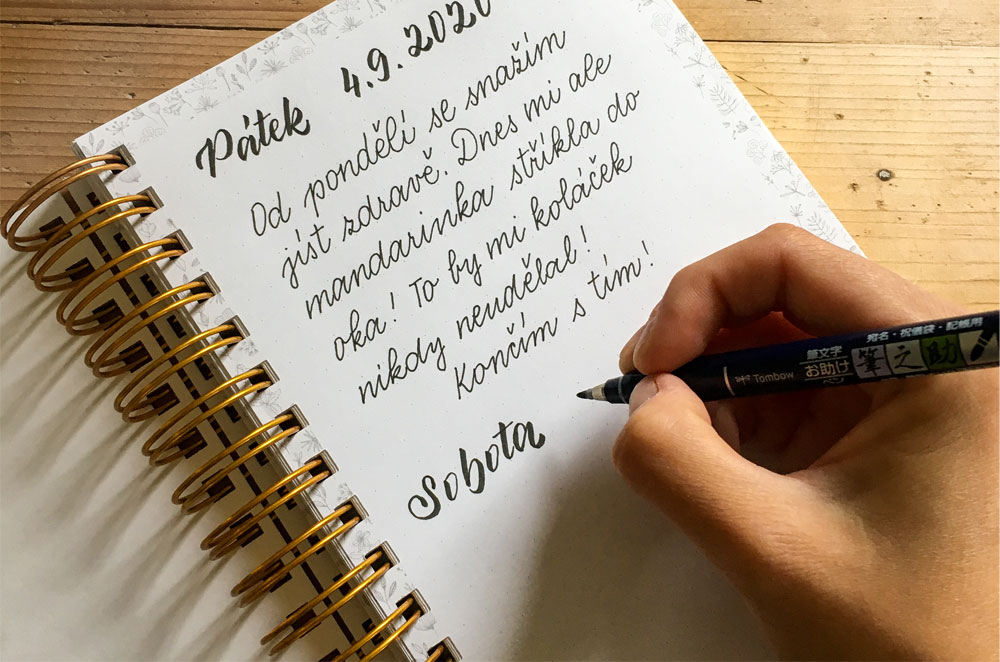 Pátek 4.9.2020
Od pondělí se snažím
jíst zdravě. Dnes mi ale
mandarinka stříkla do
oka! To by mi koláček
nikdy neudělal!
Končím s tím!
Sobota
Tombow
筆文字
お助け
筆之助
宛名・祝儀袋・記帳用